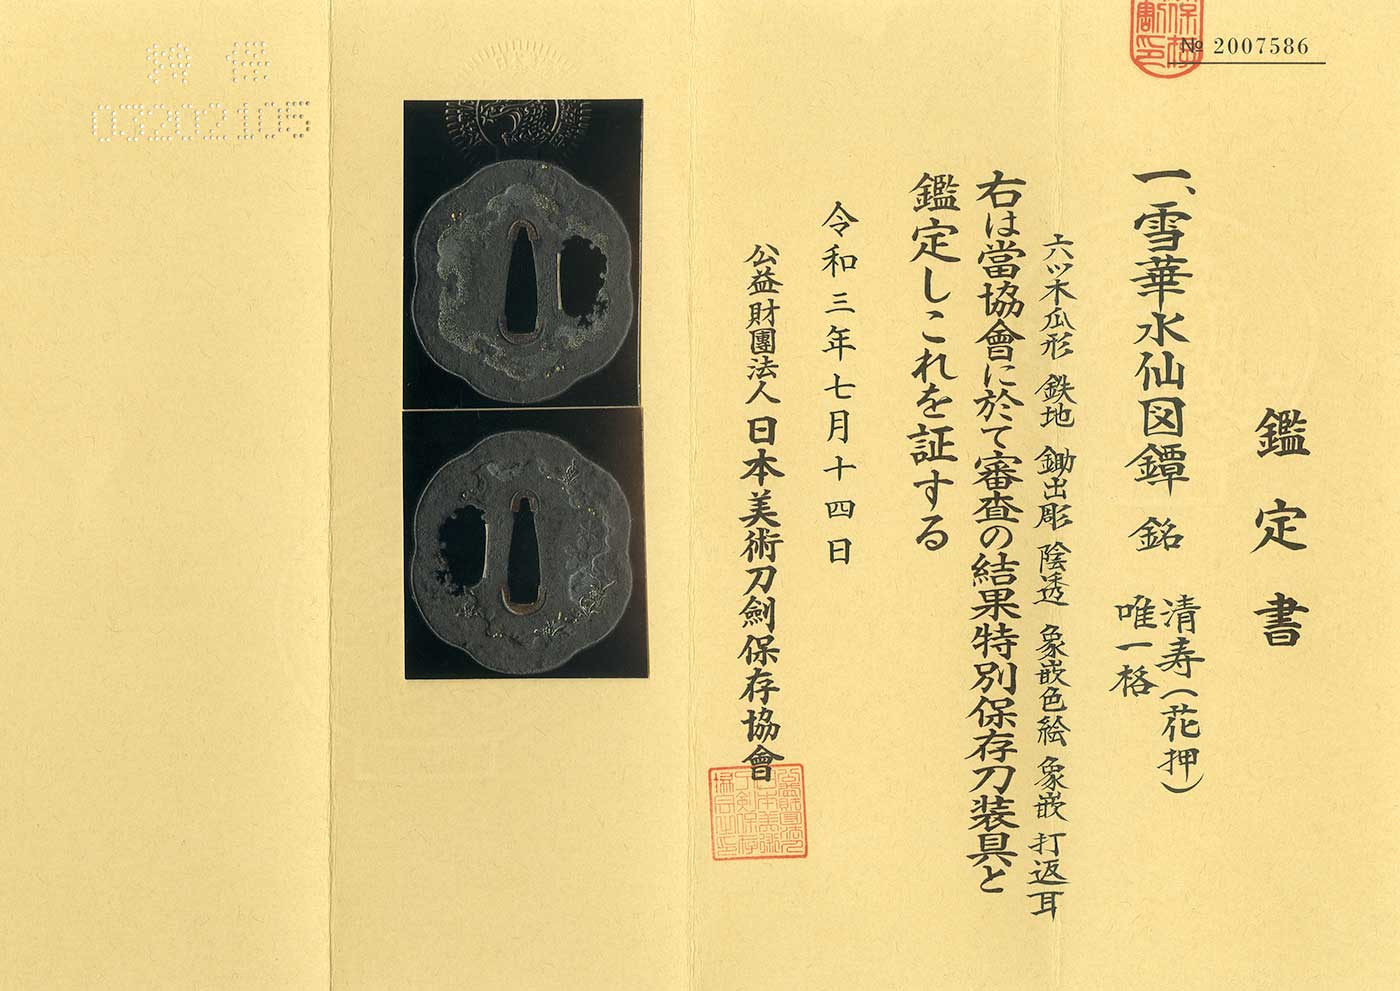 № 2007586
鑑定書
一、雪華水仙図鐔 銘 清寿(花押)
唯一格
六ツ木瓜形 鉄地 鋤出彫 陰透 象嵌色絵 象嵌 打返耳
右は當協會に於て審査の結果特別保存刀装具と
鑑定しこれを証する
令和三年七月十四日
公益財團法人 日本美術刀剣保存協會
特保
03202105